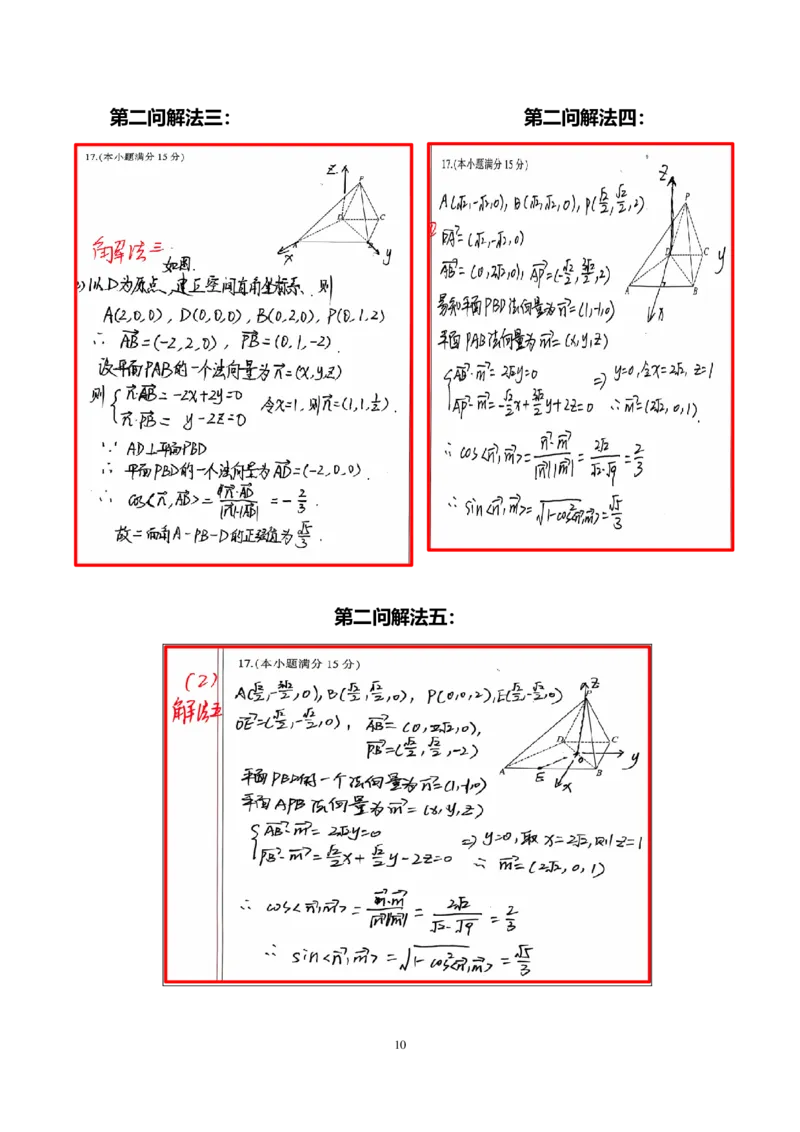 第二问解法三：
17.(本小题满分15分)
Z
P
D
C
A
B
x
y
角解法三
如图.
以D为原点、建立空间直角坐标系、则
A(2,0,0), D(0,0,0), B(0,2,0), P(0,1,2)
∴ AB=(-2,2,0), PB=(0,1,-2).
设平面PAB的一个法向量为n=(x,y,z)
则 { n·AB = -2x+2y=0
n·PB = y-2z=0
令x=1,则n=(1,1,1/2).
∵ AD⊥平面PBD
∴ 平面PBD的一个法向量为AD=(-2,0,0).
∴ cos<n,AB>= n·AD/|n|·|AB| = -2/3.
故二面角A-PB-D的正弦值为√5/3.
第二问解法四：
17.(本小题满分15分)
Z
P
D
C
y
A
B
x
A(√2,-√2,0), B(√2,√2,0), P(√2/2,√2/2,2)
DA=(√2,-√2,0)
AB=(0,2√2,0), AP=(-√2/2,3√2/2,2)
易知平面PBD法向量为n=(1,-1,0)
平面PAB法向量为m=(x,y,z)
{ AB·m=2√2y=0
AP·m=-√2/2x+3√2/2y+2z=0
⇒ y=0,令x=2√2, z=1
∴ m=(2√2,0,1).
∴ cos<n,m>= n·m/|n||m| = 2√2/√2·√9 = 2/3
∴ sin<n,m>=√1-cos²<n,m>=√5/3
第二问解法五：
(2)
解法五
17.(本小题满分15分)
A(√2/2,-3√2/2,0), B(√2/2,√2/2,0), P(0,0,2), E(√2/2,-√2/2,0)
OE=(√2/2,-√2/2,0), AB=(0,2√2,0),
PB=(√2/2,√2/2,-2)
z
D
C
O
y
A
E
B
x
平面PBD的一个法向量为n=(1,-1,0)
平面APB法向量为m=(x,y,z)
{ AB·m=2√2y=0
PB·m=√2/2x+√2/2y-2z=0
⇒ y=0,取x=2√2,则z=1
∴ m=(2√2,0,1)
∴ cos<n,m>= n·m/|n||m| = 2√2/√2·√9 = 2/3
∴ sin<n,m>=√1-cos²<n,m>=√5/3
10